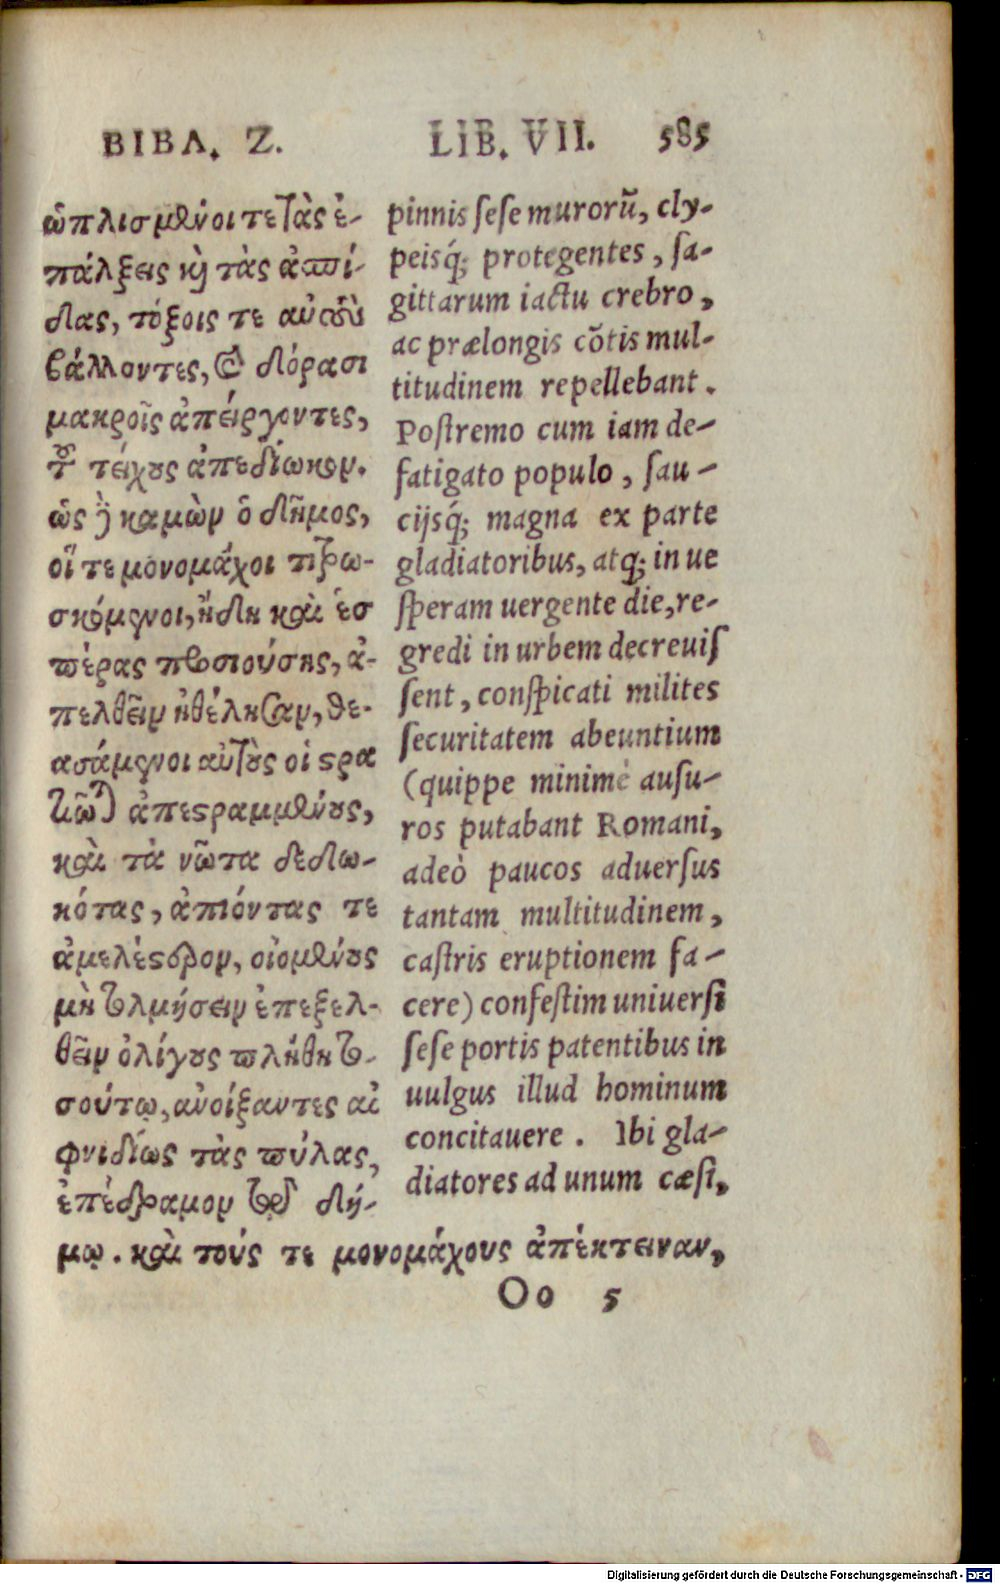 ΒΙΒΛ. Ζ.
ὡπλισμένοι τε τὰς ἐ-
πάλξεις κὶ τὰς ἀσπί-
δας, τόξοις τε αὐτοὺς
βάλλοντες, καὶ δόρασι
μακροῖς ἀπείργοντες,
τοῦ τείχους ἀπεδίωκον.
ὡς δὲ καμὼν ὁ δῆμος,
οἵ τε μονομάχοι τιτρω-
σκόμενοι, ἤδη καὶ ἑσ
πέρας προσιούσης, ἀ-
πελθεῖν ἠθέλησαν, θε-
ασάμενοι αὐτοὺς οἱ στρα
τιῶται ἀπεστραμμένους,
καὶ τὰ νῶτα δεδω-
κότας, ἀπιόντας τε
ἀμελέστερον, οἰομένους
μὴ τολμήσειν ἐπεξελ-
θεῖν ὀλίγους πλήθη το-
σούτῳ, ἀνοίξαντες αἰ
φνιδίως τὰς πύλας,
ἐπέδραμον τῷ δή-
μῳ. καὶ τούς τε μονομάχους ἀπέκτειναν,
LIB. VII. 585
pinnis sese murorũ, cly-
peisq́; protegentes, sa-
gittarum iactu crebro,
ac prælongis cõtis mul-
titudinem repellebant.
Postremo cum iam de-
fatigato populo, sau-
cijsq́; magna ex parte
gladiatoribus, atq; in ue
speram uergente die, re-
gredi in urbem decreuis
sent, conspicati milites
securitatem abeuntium
(quippe minimè ausu-
ros putabant Romani,
adeò paucos aduersus
tantam multitudinem,
castris eruptionem fa-
cere) confestim uniuersi
sese portis patentibus in
uulgus illud hominum
concitauere. Ibi gla-
diatores ad unum cæsi,
Oo 5
Digitalisierung gefördert durch die Deutsche Forschungsgemeinschaft - DFG